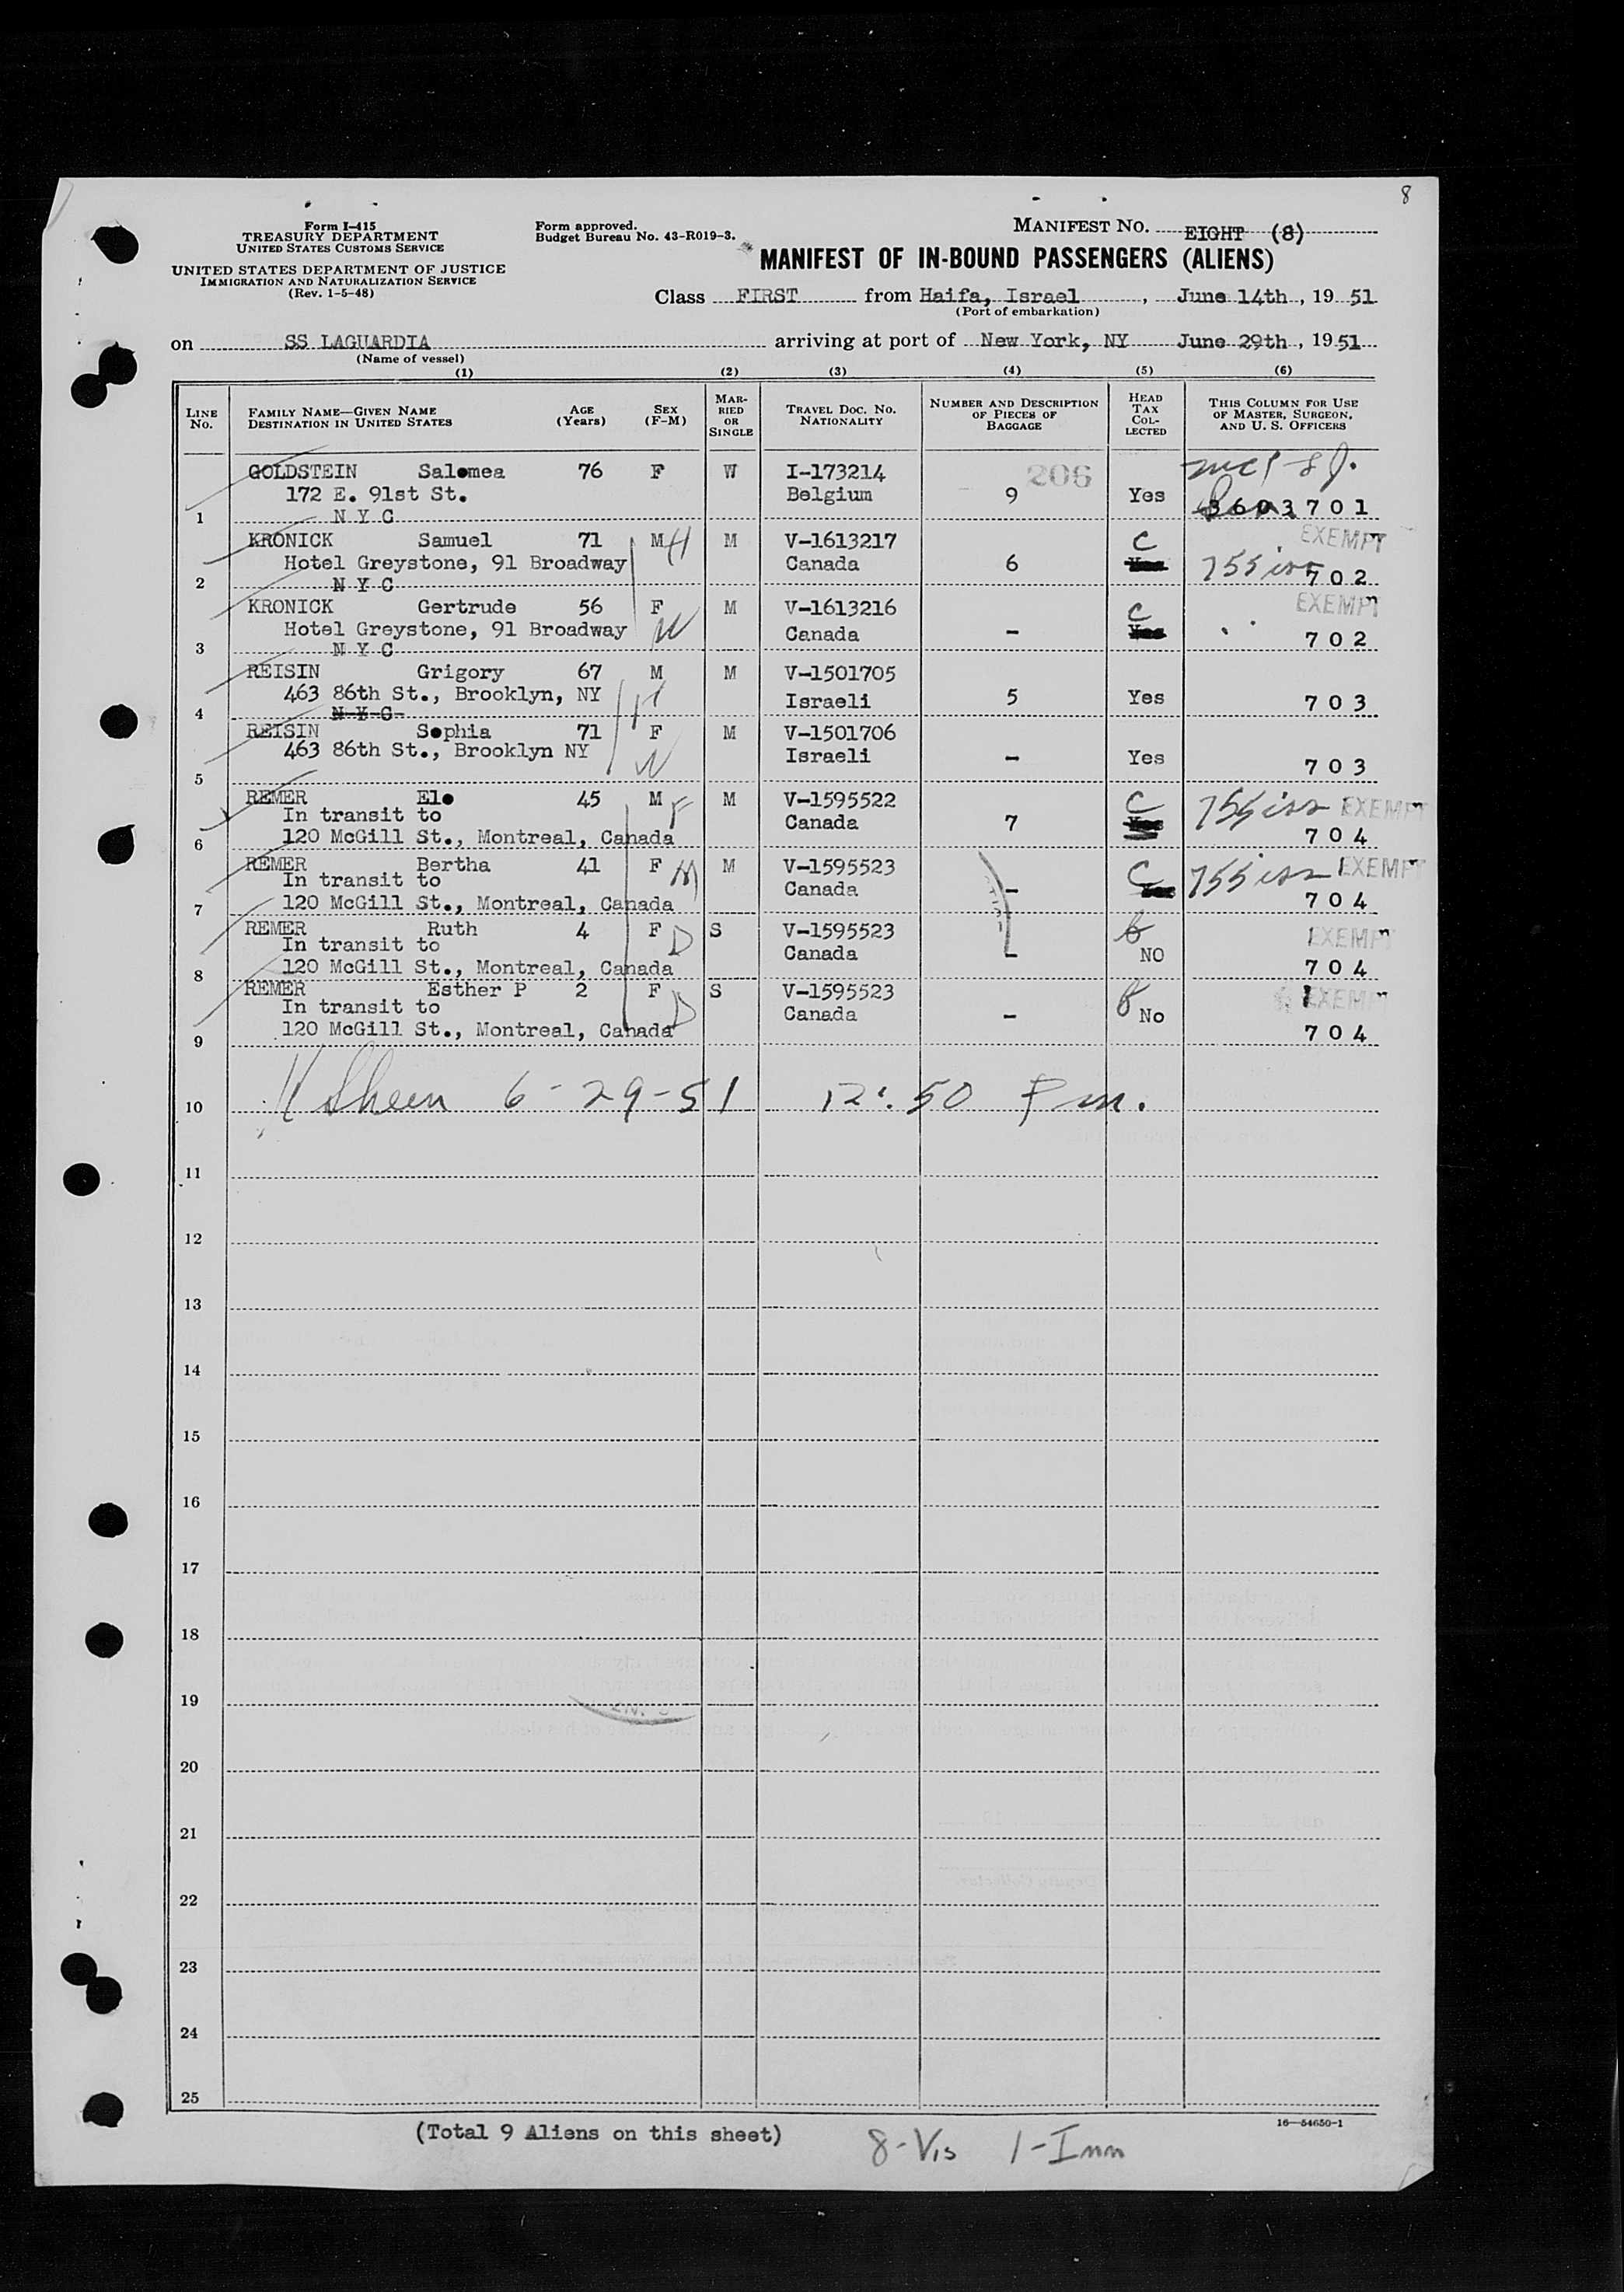 8
Form I-415
TREASURY DEPARTMENT
UNITED STATES CUSTOMS SERVICE
UNITED STATES DEPARTMENT OF JUSTICE
IMMIGRATION AND NATURALIZATION SERVICE
(Rev. 1-5-48)
Form approved.
Budget Bureau No. 43-R019-3.
MANIFEST NO. EIGHT (8)
MANIFEST OF IN-BOUND PASSENGERS (ALIENS)
Class FIRST from Haifa, Israel, June 14th, 1951
(Port of embarkation)
on SS LAGUARDIA arriving at port of New York, NY June 29th, 1951
(Name of vessel)
(1) (2) (3) (4) (5) (6)
LINE No. FAMILY NAME—GIVEN NAME DESTINATION IN UNITED STATES AGE (Years) SEX (F-M) MARRIED OR SINGLE TRAVEL DOC. NO. NATIONALITY NUMBER AND DESCRIPTION OF PIECES OF BAGGAGE HEAD TAX COLLECTED THIS COLUMN FOR USE OF MASTER, SURGEON, AND U. S. OFFICERS
GOLDSTEIN Salomea 76 F W I-173214 206
172 E. 91st St. Belgium 9 Yes 3603701
1 N Y C
KRONICK Samuel 71 M H M V-1613217 C EXEMPT
Hotel Greystone, 91 Broadway Canada 6 Yes 755 iss 702
2 N Y C
KRONICK Gertrude 56 F W M V-1613216 C EXEMPT
Hotel Greystone, 91 Broadway Canada - Yes 702
3 N Y C
REISIN Grigory 67 M H M V-1501705
463 86th St., Brooklyn, NY Israeli 5 Yes 703
4 N Y C
REISIN Sophia 71 F W M V-1501706
463 86th St., Brooklyn NY Israeli - Yes 703
5
REMER Elo 45 M F M V-1595522 C 755 iss EXEMPT
In transit to Canada 7 Yes 704
6 120 McGill St., Montreal, Canada
REMER Bertha 41 F M M V-1595523 C 755 iss EXEMPT
In transit to Canada - Yes 704
7 120 McGill St., Montreal, Canada
REMER Ruth 4 F D S V-1595523 EXEMPT
In transit to Canada - NO 704
8 120 McGill St., Montreal, Canada
REMER Esther P 2 F D S V-1595523 EXEMPT
In transit to Canada - No 704
9 120 McGill St., Montreal, Canada
10 Sheen 6-29-51 12:50 Pm.
11
12
13
14
15
16
17
18
19
20
21
22
23
24
25
16—54650-1
(Total 9 Aliens on this sheet) 8-Vis 1-Imm